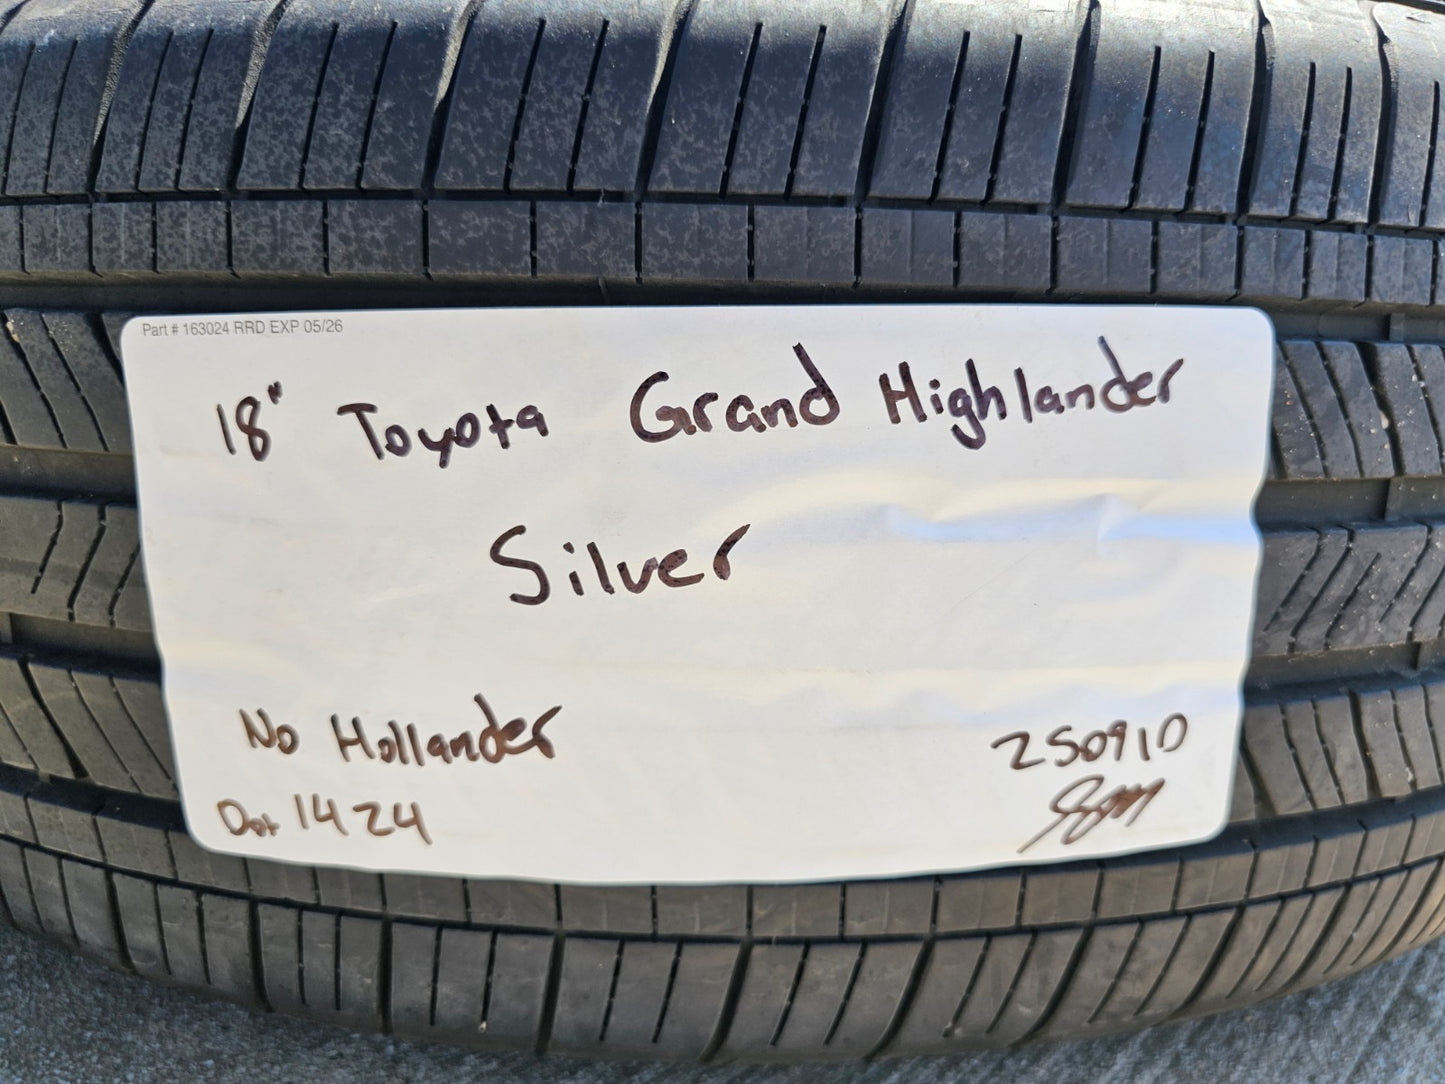 Part # 163024 RRD EXP 05/26
18" Toyota Grand Highlander
Silver
No Hollander
250910
Dot 1424